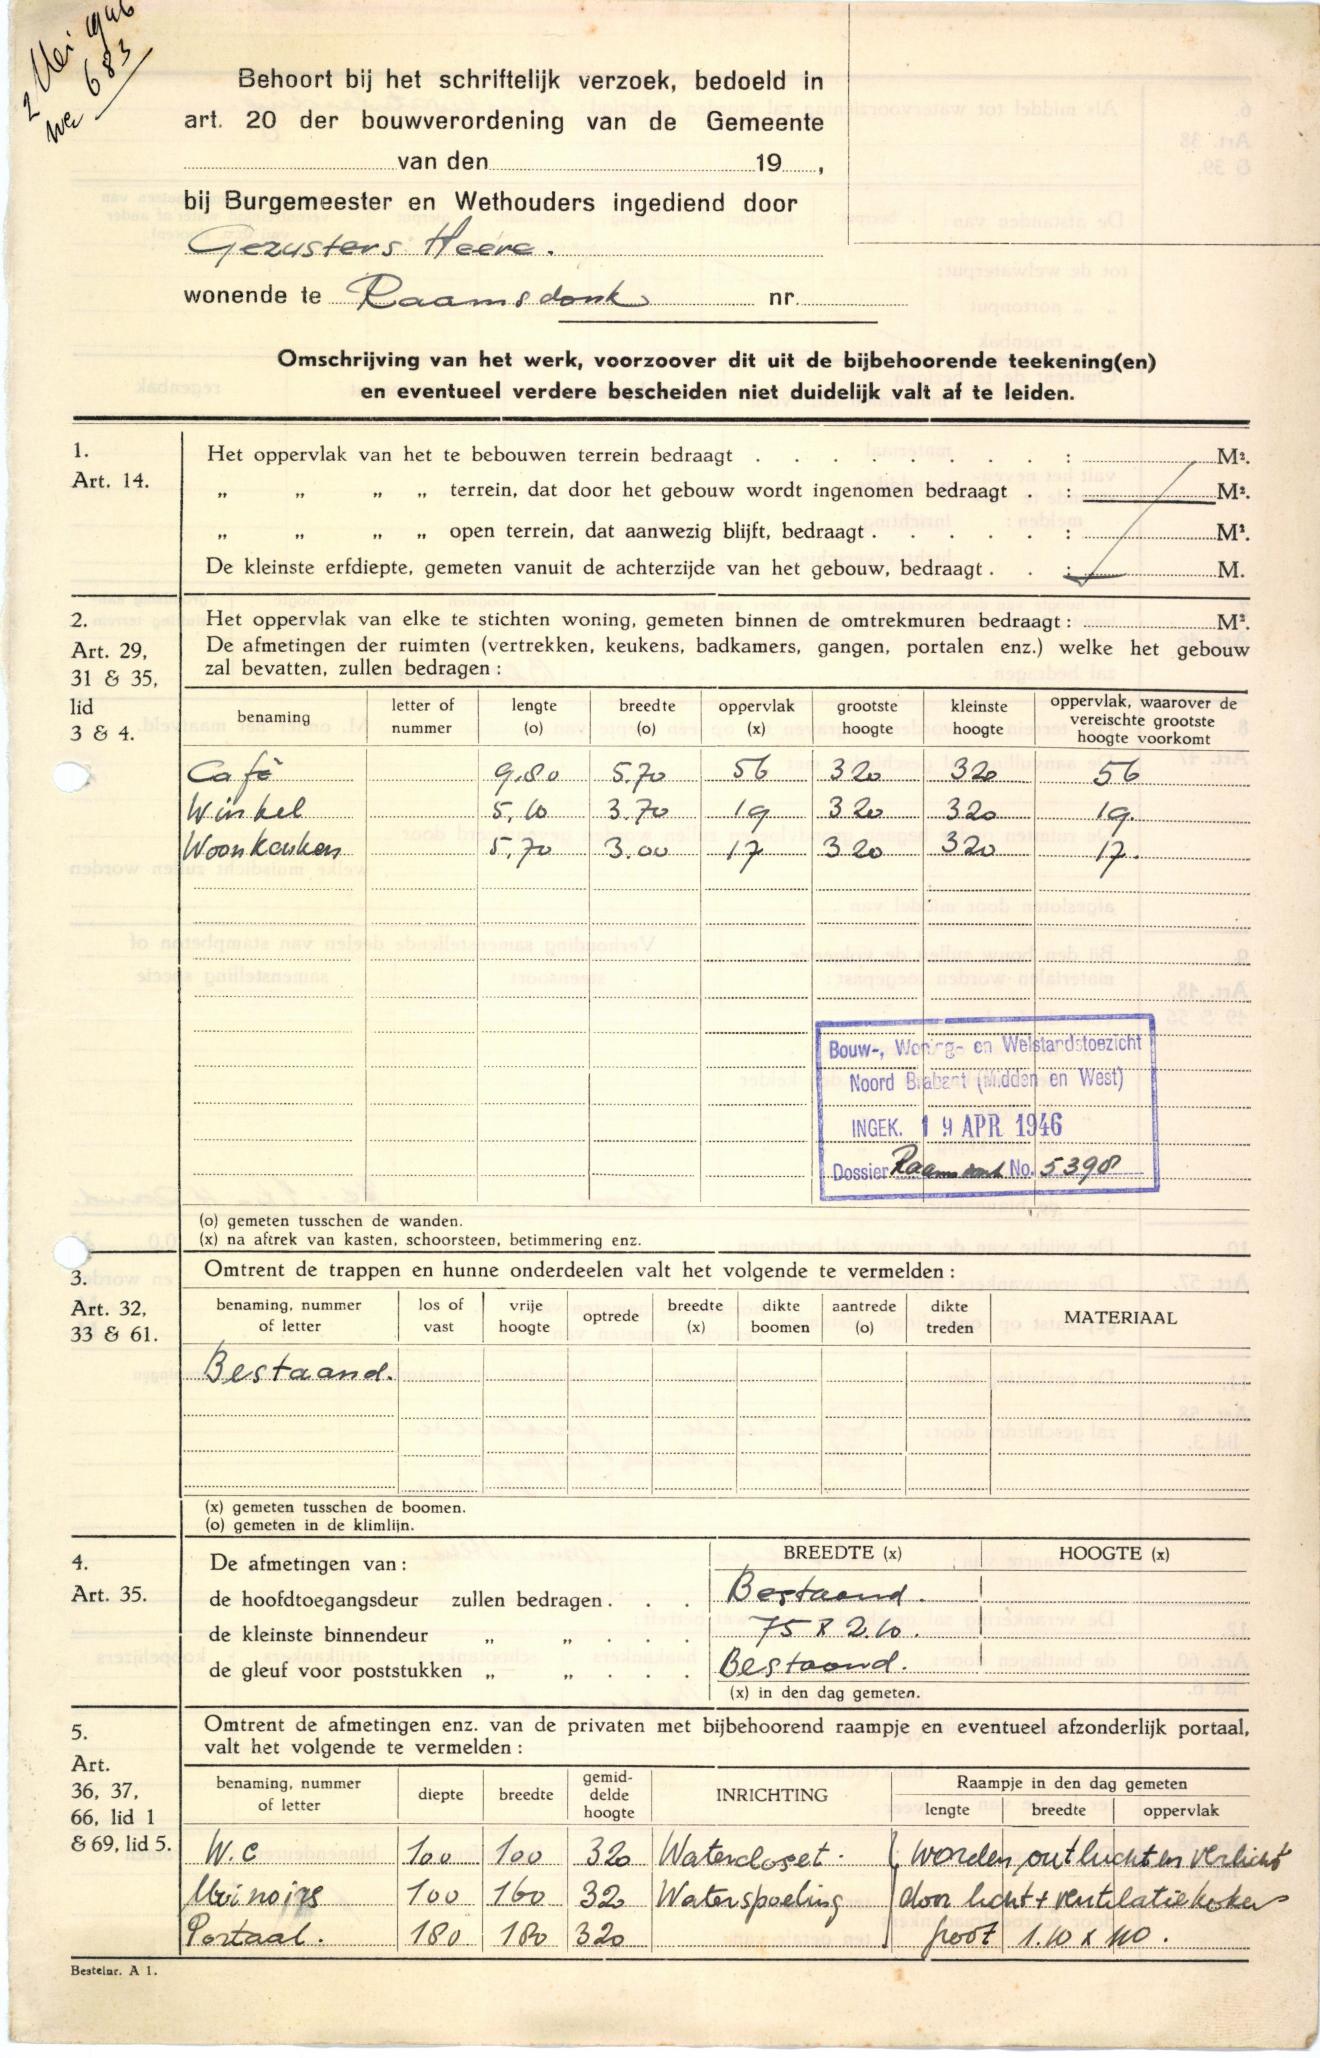 2 Mei 1946
683
Behoort bij het schriftelijk verzoek, bedoeld in
art. 20 der bouwverordening van de Gemeente
van den 19 ,
bij Burgemeester en Wethouders ingediend door
Gezusters Heere.
wonende te Raamsdonk nr.
Omschrijving van het werk, voorzoover dit uit de bijbehoorende teekening(en)
en eventueel verdere bescheiden niet duidelijk valt af te leiden.
1.
Art. 14.
Het oppervlak van het te bebouwen terrein bedraagt . . . . . . . . : M².
„ „ „ „ terrein, dat door het gebouw wordt ingenomen bedraagt . : M².
„ „ „ „ open terrein, dat aanwezig blijft, bedraagt . . . . . . : M².
De kleinste erfdiepte, gemeten vanuit de achterzijde van het gebouw, bedraagt . . : M.
2.
Art. 29,
31 & 35,
lid
3 & 4.
Het oppervlak van elke te stichten woning, gemeten binnen de omtrekmuren bedraagt : M².
De afmetingen der ruimten (vertrekken, keukens, badkamers, gangen, portalen enz.) welke het gebouw
zal bevatten, zullen bedragen :
benaming | letter of nummer | lengte (o) | breedte (o) | oppervlak (x) | grootste hoogte | kleinste hoogte | oppervlak, waarover de vereischte grootste hoogte voorkomt
Café 9.80 5.70 56 320 320 56
Winkel 5,10 3.70 19 320 320 19.
Woonkeuken 5,70 3.00 17 320 320 17.
Bouw-, Woning- en Welstandstoezicht
Noord Brabant (Midden en West)
INGEK. 19 APR 1946
Dossier Raamsdonk No. 5398
(o) gemeten tusschen de wanden.
(x) na aftrek van kasten, schoorsteen, betimmering enz.
3.
Art. 32,
33 & 61.
Omtrent de trappen en hunne onderdeelen valt het volgende te vermelden :
benaming, nummer of letter | los of vast | vrije hoogte | optrede | breedte (x) | dikte boomen | aantrede (o) | dikte treden | MATERIAAL
Bestaand.
(x) gemeten tusschen de boomen.
(o) gemeten in de klimlijn.
4.
Art. 35.
De afmetingen van : BREEDTE (x) HOOGTE (x)
de hoofdtoegangsdeur zullen bedragen . . . Bestaand.
de kleinste binnendeur „ „ . . . 75 x 2.10.
de gleuf voor poststukken „ „ . . . Bestaand.
(x) in den dag gemeten.
5.
Art.
36, 37,
66, lid 1
& 69, lid 5.
Omtrent de afmetingen enz. van de privaten met bijbehoorend raampje en eventueel afzonderlijk portaal,
valt het volgende te vermelden :
benaming, nummer of letter | diepte | breedte | gemiddelde hoogte | INRICHTING | Raampje in den dag gemeten
lengte | breedte | oppervlak
W.C 100 100 320 Watercloset. worden ontlucht en verlicht
100 160 320 Waterspoeling door licht + ventilatiekoker
Portaal. 180 180 320 groot 1.10 x 110.
Bestelnr. A 1.